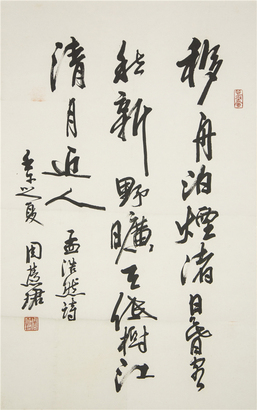 移舟泊煙渚日暮客
愁新野曠天低樹江
清月近人
孟浩然詩
之夏
周慧珺